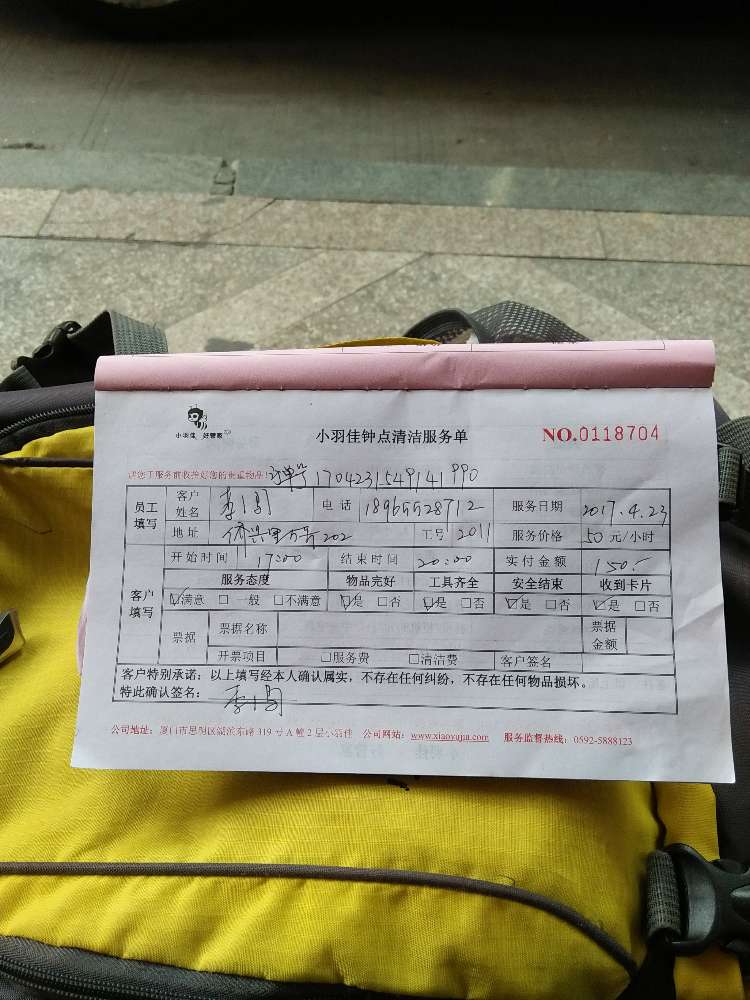 小羽佳 好管家
小羽佳钟点清洁服务单
NO.0118704
请您于服务前收拾好您的贵重物品! 订单号 1704231549141990
员工填写 客户姓名 电话 18965528712 服务日期 2017.4.23
地址 202 工号 2011 服务价格 50 元/小时
开始时间 17:00 结束时间 20:00 实付金额 150.-
客户填写 服务态度 物品完好 工具齐全 安全结束 收到卡片
☑满意 □一般 □不满意 ☑是 □否 ☑是 □否 ☑是 □否 ☑是 □否
票据 票据名称 票据金额
开票项目 □服务费 □清洁费 客户签名
客户特别承诺:以上填写经本人确认属实,不存在任何纠纷,不存在任何物品损坏。
特此确认签名:
公司地址:厦门市思明区湖滨东路 319 号 A 幢 2 层小羽佳 公司网站:www.xiaoyujia.com 服务监督热线:0592-5888123